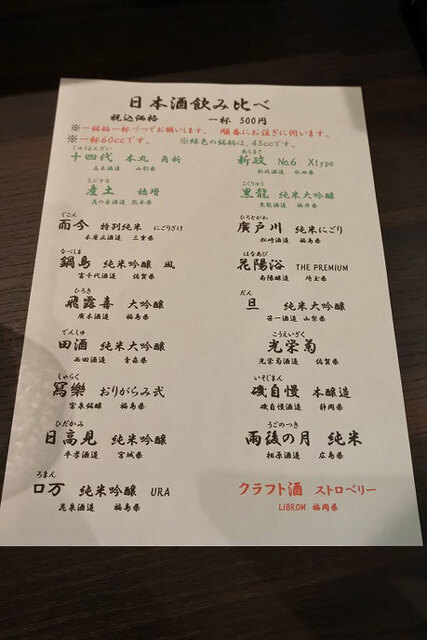 日本酒飲み比べ
税込価格 一杯 500円
※一銘柄一杯づつでお願いします。 順番にお注ぎに伺います。
※一杯60ccです。 ※緑色の銘柄は、45ccです。
じゅうよんだい
十四代 本丸 角新
高木酒造 山形県
あらまさ
新政 No.6 Xtype
新政酒造 秋田県
うぶすな
産土 穂増
花の香酒造 熊本県
こくりゅう
黒龍 純米大吟醸
黒龍酒造 福井県
じこん
而今 特別純米 にごりざけ
木屋正酒造 三重県
ひろとがわ
廣戸川 純米にごり
松崎酒造 福島県
なべしま
鍋島 純米吟醸 風
富千代酒造 佐賀県
はなあび
花陽浴 THE PREMIUM
南陽醸造 埼玉県
ひろき
飛露喜 大吟醸
廣木酒造 福島県
だん
旦 純米大吟醸
笹一酒造 山梨県
でんしゅ
田酒 純米大吟醸
西田酒造 青森県
こうえいぎく
光栄菊
光栄菊酒造 佐賀県
しゃらく
冩樂 おりがらみ弐
宮泉銘醸 福島県
いそじまん
磯自慢 本醸造
磯自慢酒造 静岡県
ひだかみ
日高見 純米吟醸
平孝酒造 宮城県
うごのつき
雨後の月 純米
相原酒造 広島県
ろまん
ロ万 純米吟醸 URA
花泉酒造 福島県
クラフト酒 ストロベリー
LIBROM 福岡県